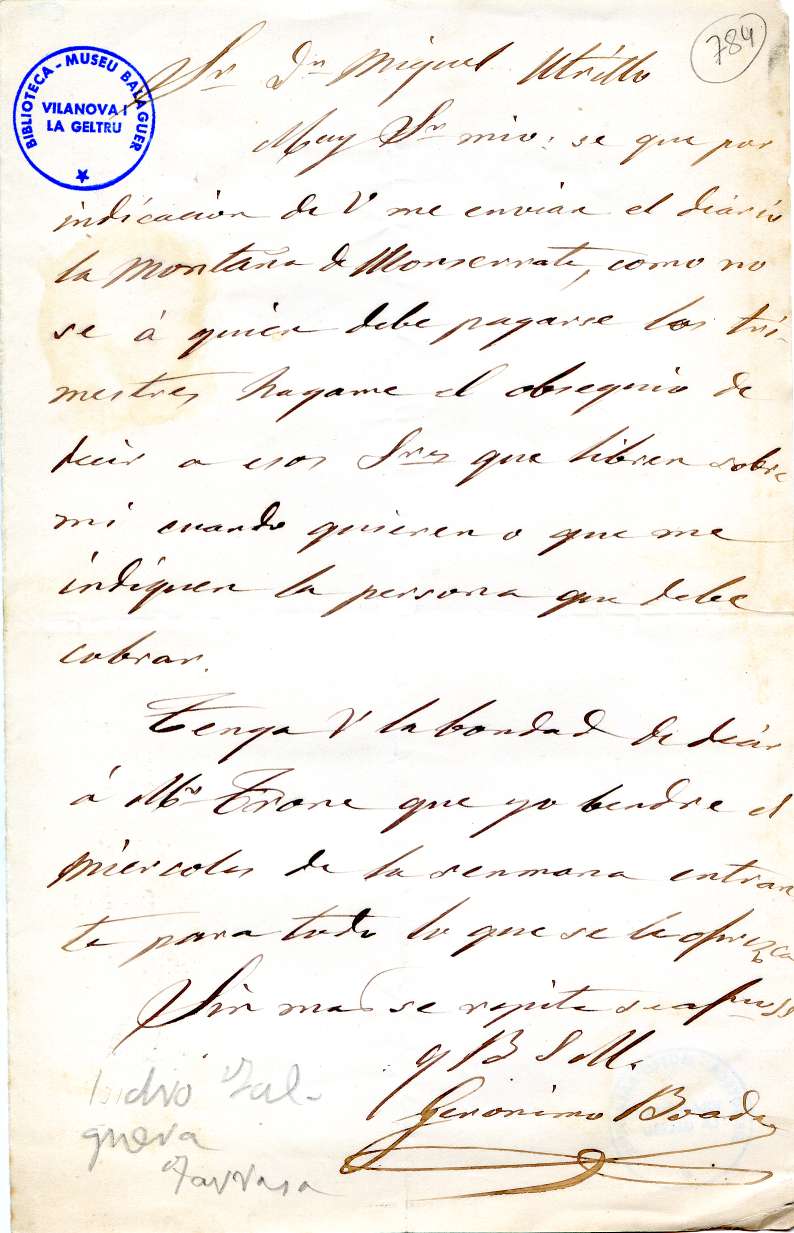 784
BIBLIOTECA - MUSEU BALAGUER
VILANOVA I
LA GELTRU
Sr. Dn Miguel Utrillo
Muy Sr mio: se que por
indicacion de V me envian el diario
la Montaña de Monserrate, como no
se á quien debe pagarse los tri-
mestres hagame el obsequio de
decir a esos Sres que libren sobre
mi cuando quieren o que me
indiquen la persona que debe
cobrar.
Tenga V la bondad de decir
á Mr. Trone que yo bendre el
miercoles de la senmana entran
te para todo lo que se le ofrezca
Sin mas se repite su
q B S M.
Geronimo Boada
Isidro Fal-
guera
Tarrasa